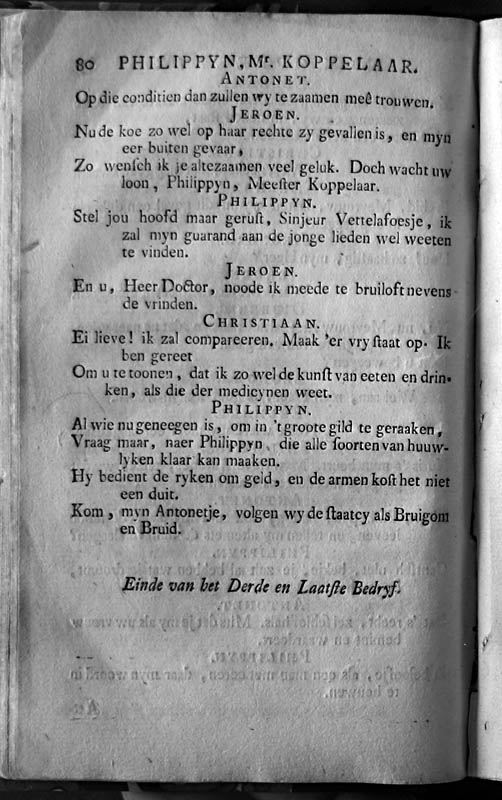 80 PHILIPPYN, Mr. KOPPELAAR.
ANTONET.
Op die conditien dan zullen wy te zaamen meê trouwen.
JEROEN.
Nu de koe zo wel op haar rechte zy gevallen is, en myn
eer buiten gevaar,
Zo wenſch ik je altezaamen veel geluk. Doch wacht uw
loon, Philippyn, Meeſter Koppelaar.
PHILIPPYN.
Stel jou hoofd maar geruſt, Sinjeur Vettelafoesje, ik
zal myn guarand aan de jonge lieden wel weeten
te vinden.
JEROEN.
En u, Heer Doctor, noode ik meede te bruiloft nevens
de vrinden.
CHRISTIAAN.
Ei lieve! ik zal compareeren. Maak 'er vry ſtaat op. Ik
ben gereet
Om u te toonen, dat ik zo wel de kunſt van eeten en drin-
ken, als die der medicynen weet.
PHILIPPYN.
Al wie nu geneegen is, om in 't groote gild te geraaken,
Vraag maar, naer Philippyn, die alle ſoorten van huuw-
lyken klaar kan maaken.
Hy bedient de ryken om geld, en de armen koſt het niet
een duit.
Kom, myn Antonetje, volgen wy de ſtaatcy als Bruigom
en Bruid.
Einde van het Derde en Laatſte Bedryf.